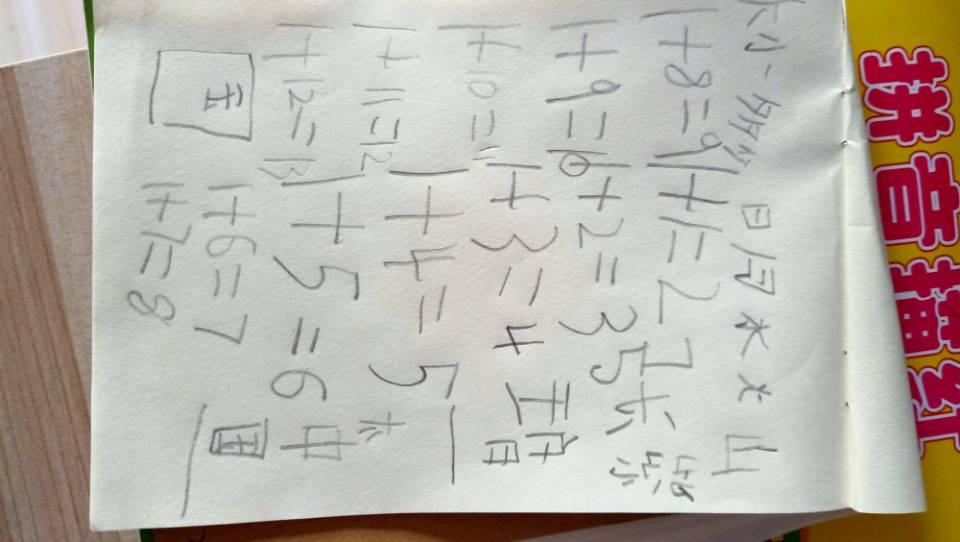 拼音描红
小一 日月水火山
1+8=9 1+1=2
1+9=10 1+2=3
1+10=11 1+3=4 王
1+11=12 1+4=5
1+12=13 1+5=6 中
玉 1+6=7 国
1+7=8